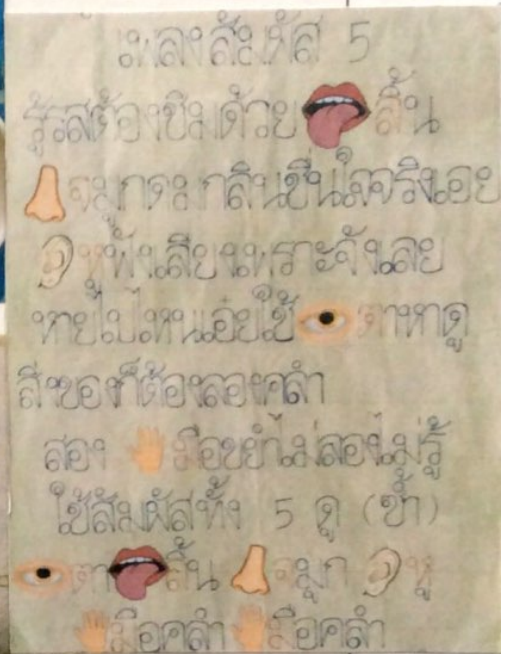 เพลงสัมผัส 5
รู้รสต้องชิมด้วยลิ้น
จมูกดมกลิ่นชื่นใจจริงเอย
หูฟังเสียงเพราะจังเลย
หายไปไหนเอ่ยใช้ตาหาดู
สิ่งของก็ต้องลองคลำ
สองมือขยำไม่ลองไม่รู้
ใช้สัมผัสทั้ง 5 ดู (ซ้ำ)
ตาลิ้นจมูกหู
มือคลำมือคลำ